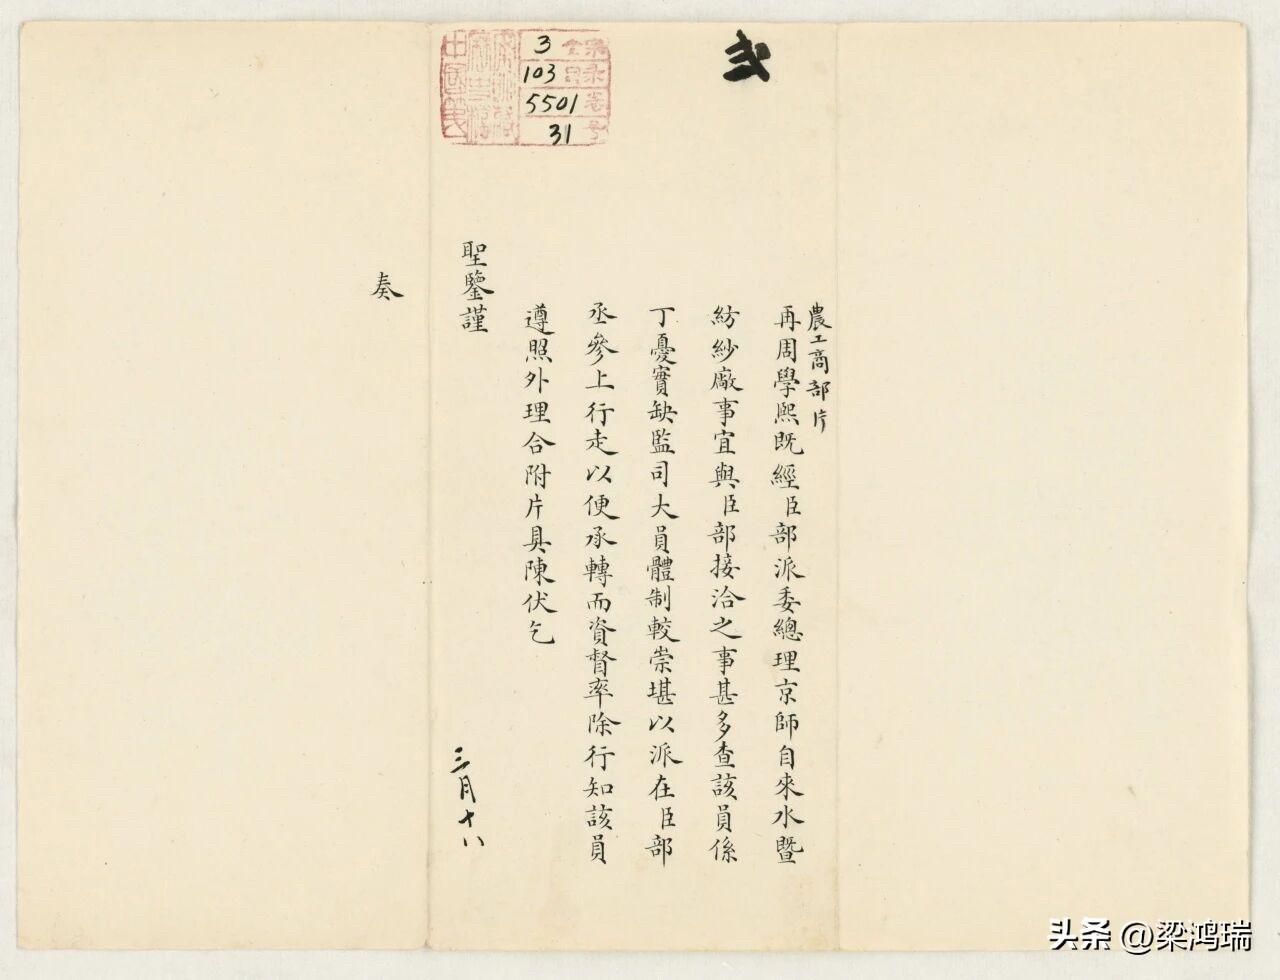 弍
農工商部片
再周學熙既經臣部派委總理京師自來水暨
紡紗廠事宜與臣部接洽之事甚多查該員係
丁憂實缺監司大員體制較崇堪以派在臣部
丞參上行走以便承轉而資督率除行知該員
遵照外理合附片具陳伏乞
聖鑒謹
奏
三月十八
3
103
5501
31
头条 @梁鸿瑞